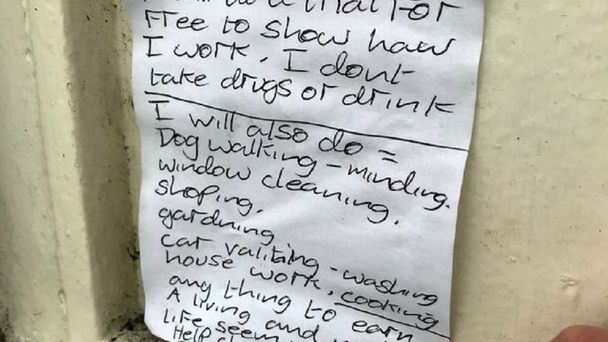 a trial for
free to show haw
I work. I dont
take drugs or drink
I will also do =
Dog walking - minding.
window cleaning.
shoping.
gardning
car valiting - washing
house work, cooking
any thing to earn
A living and
life seem
Help